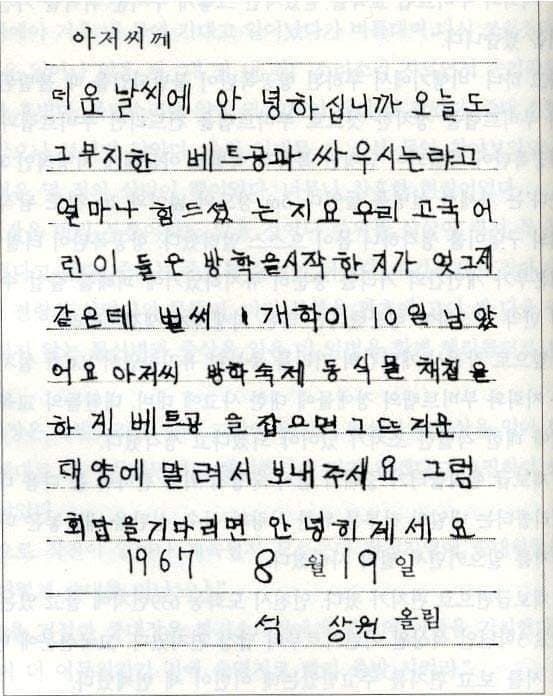 아저씨께
더운 날씨에 안녕하십니까 오늘도
그무지한 베트콩과 싸우시는라고
얼마나 힘드셨는지요 우리 고국 어
린이들은 방학을시작한지가 엊그제
같은데 벌써 개학이 10일 남았
어요 아저씨 방학숙제 동식물 채집을
하게 베트콩을 잡으면 그뜨거운
태양에 말려서 보내주세요 그럼
회답을기다리면 안녕히계세요
1967 8월 19일
석 상원 올림